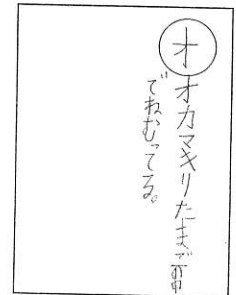 オオカマキリたまごの中
でねむってる。